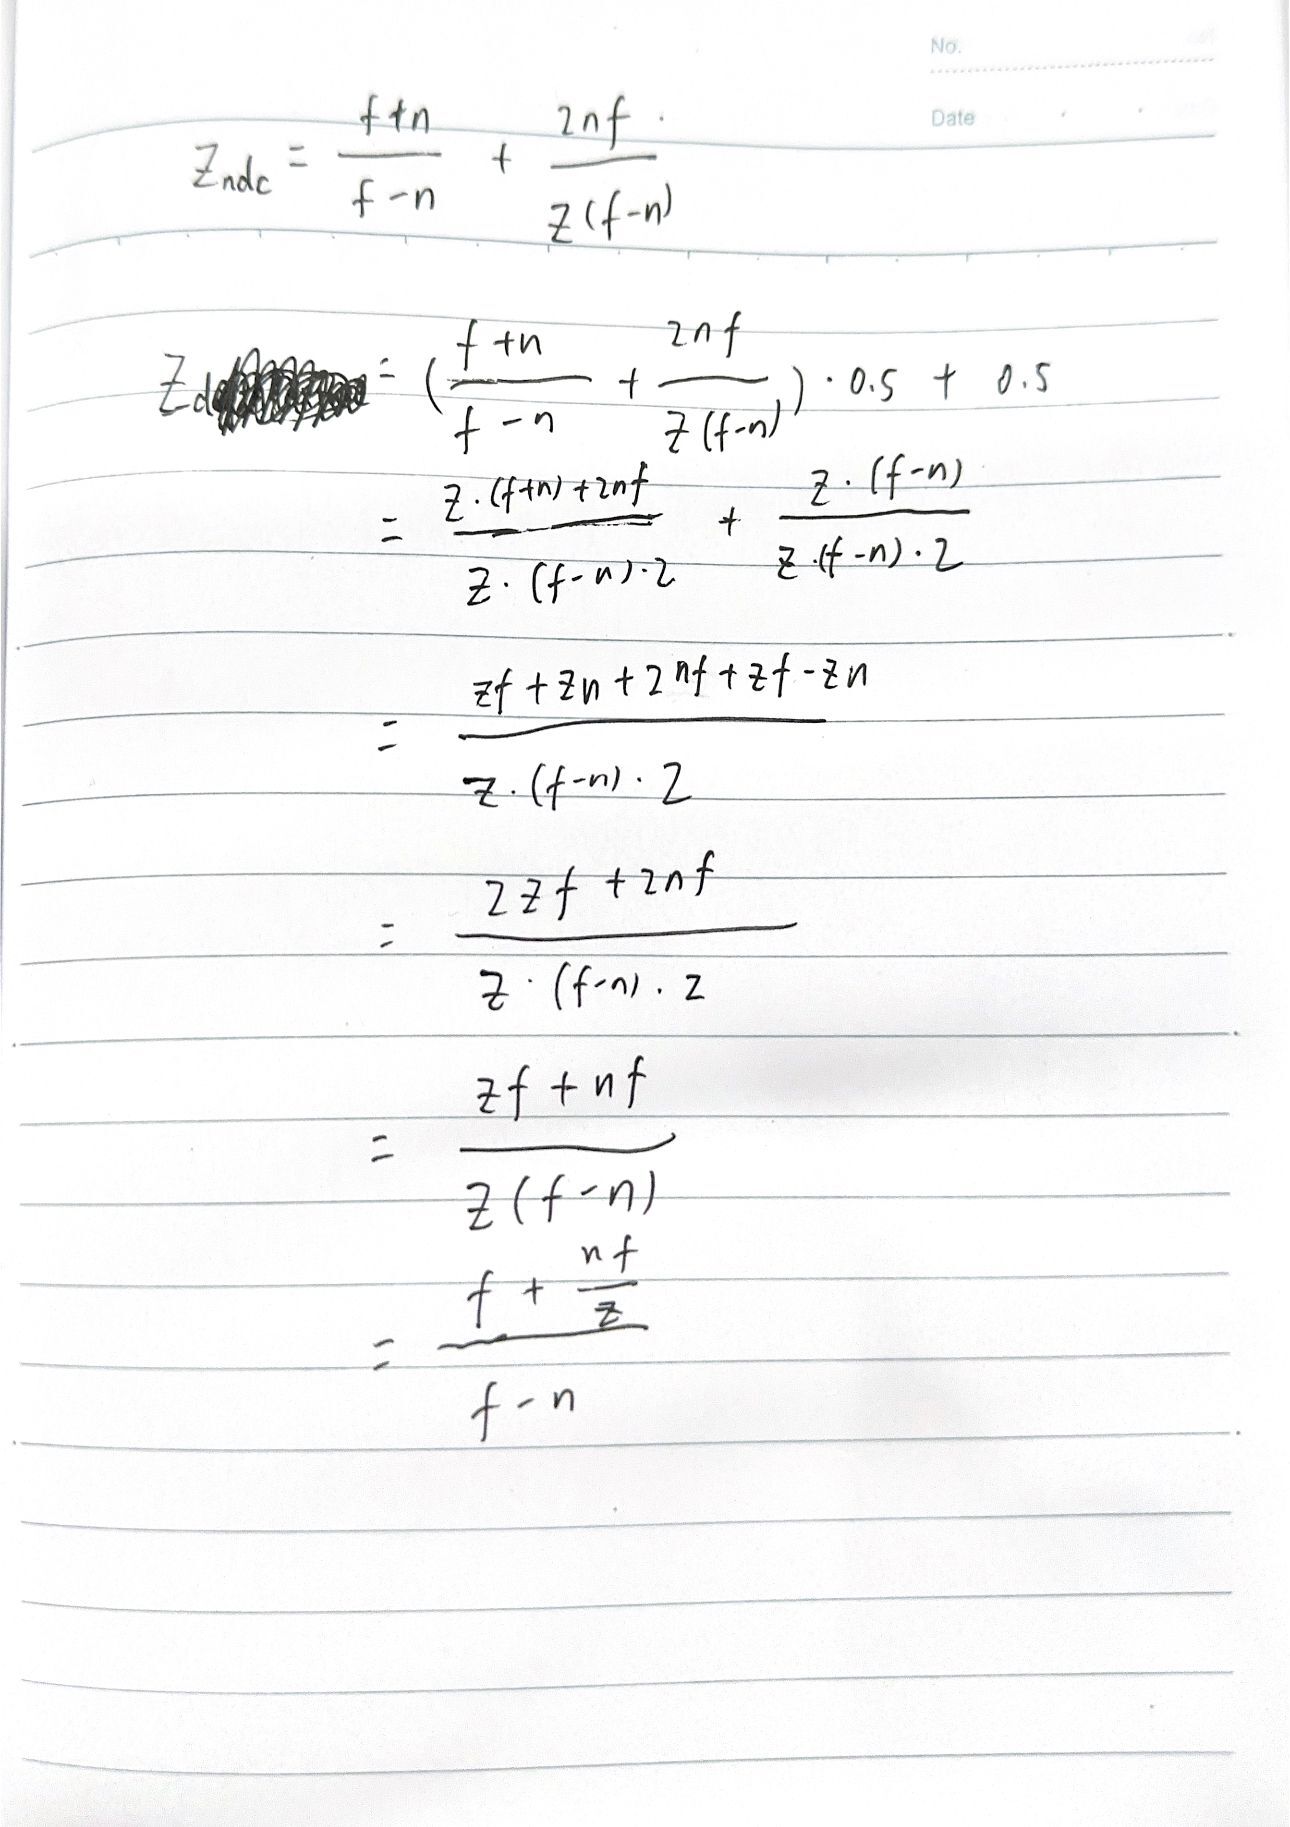 No.
Date
Zndc = (f+n)/(f-n) + 2nf/(z(f-n))
Zd = ((f+n)/(f-n) + 2nf/(z(f-n))) · 0.5 + 0.5
= (z·(f+n)+2nf)/(z·(f-n)·2) + (z·(f-n))/(z·(f-n)·2)
= (zf+zn+2nf+zf-zn)/(z·(f-n)·2)
= (2zf+2nf)/(z·(f-n)·2)
= (zf+nf)/(z(f-n))
= (f + nf/z)/(f-n)